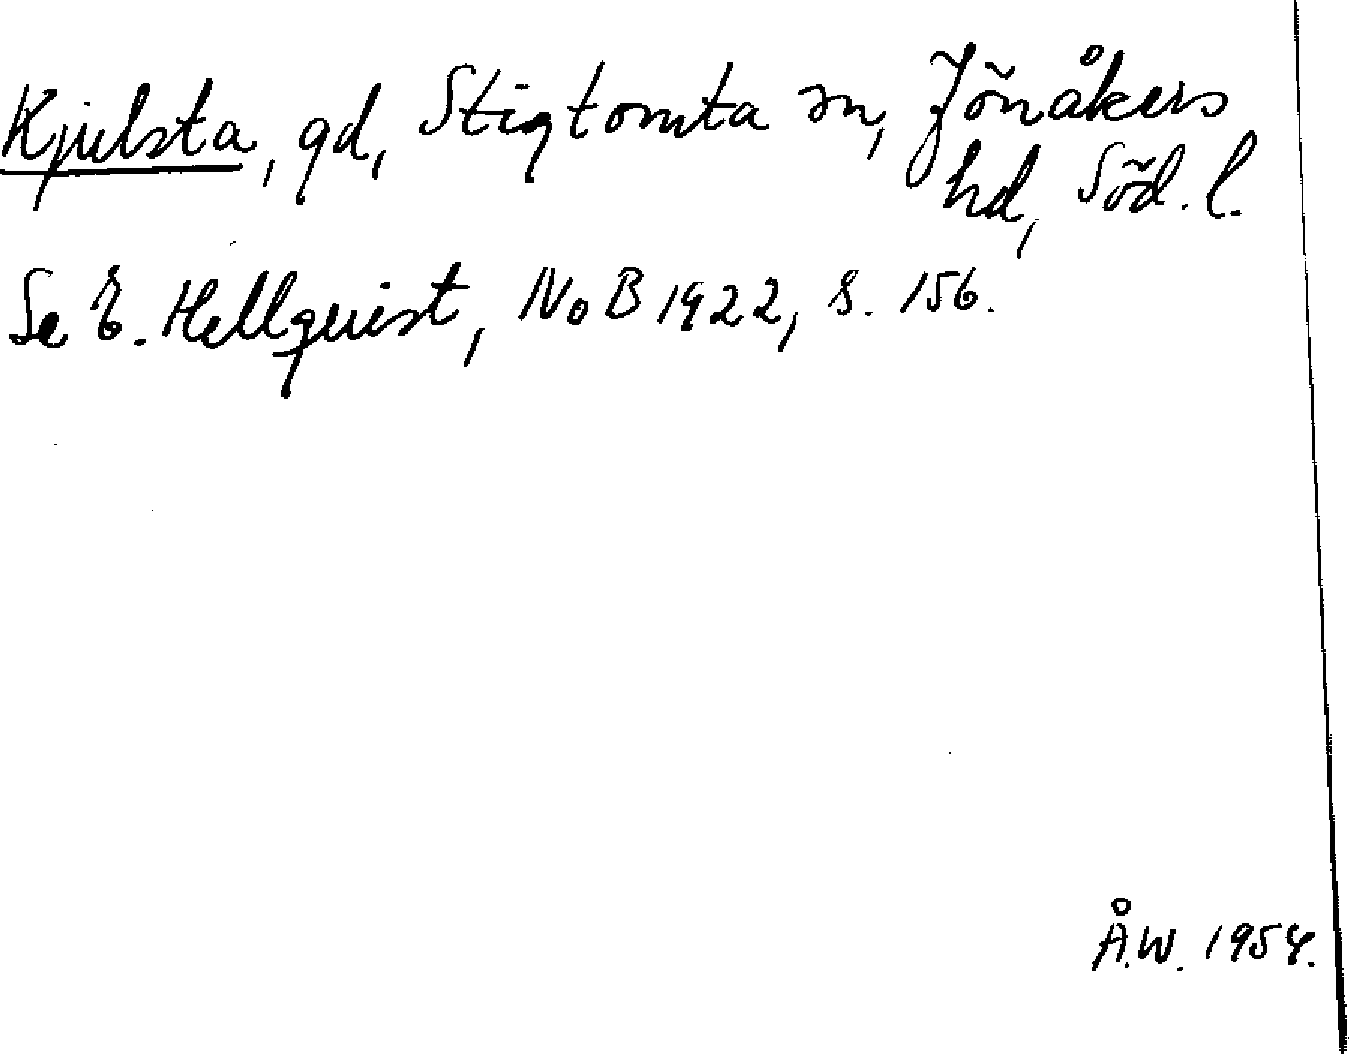 Kjulsta, gd, Stigtomta sn, Jönåkers
hd, Söd. l.
Se E. Hellquist, NoB 1922, s. 156.
Å.W. 1954.